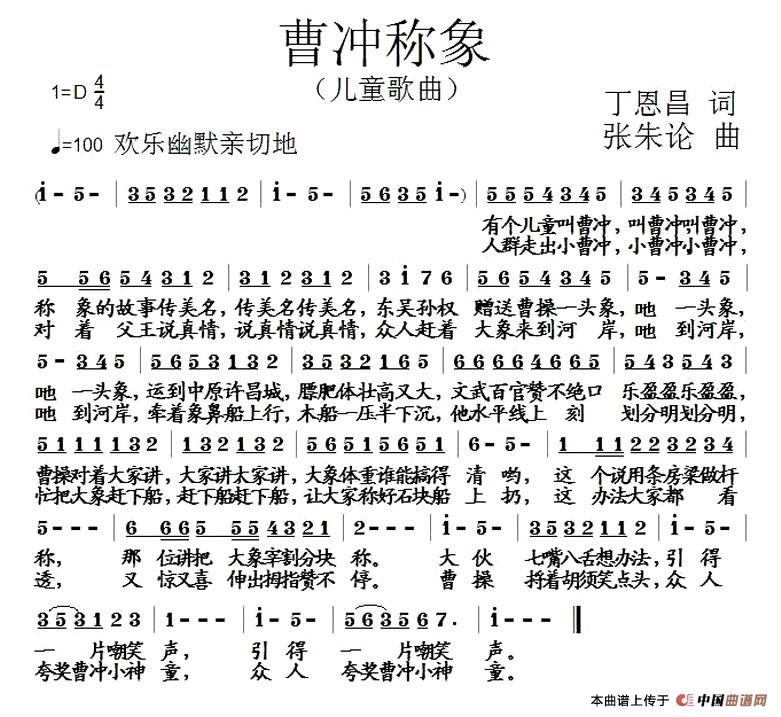 曹冲称象
(儿童歌曲)
1=D 4/4
丁恩昌 词
♩=100 欢乐幽默亲切地
张朱论 曲
(i- 5- | 3 5 3 2 1 1 2 | i- 5- | 5 6 3 5 i-) | 5 5 5 4 3 4 5 | 5 4 3 4 5 |
有个儿童叫曹冲，叫曹冲,叫曹冲，
人群走出小曹冲，小曹冲,小曹冲，
5 5 6 5 4 3 1 2 | 3 1 2 3 1 2 | 3 i 7 6 | 5 6 5 4 3 4 5 | 5- 3 4 5 |
称 象的故事传美名，传美名传美名，东吴孙权 赠送曹操一头象，吔 一头象，
对 着 父王说真情，说真情说真情，众人赶着 大象来到河 岸，吔 到河岸，
5- 3 4 5 | 5 6 5 3 1 3 2 | 3 5 3 2 1 6 5 | 6 6 6 6 4 6 6 | 5 4 3 5 4 3 |
吔 一头象，运到中原许昌城，膘肥体壮高又大，文武百官赞不绝口 乐盈盈乐盈盈，
吔 到河岸，牵着象鼻船上行，木船一压半下沉，他水平线上 刻 划分明划分明，
5 1 1 1 1 3 2 | 1 3 2 1 3 2 | 5 6 5 1 5 6 5 1 | 6- 5- | 1 1 1 2 2 3 2 3 |
曹操对着大家讲，大家讲大家讲，大象体重谁能搞得 清哟，这 个说用条房梁做杆
忙把大象赶下船，赶下船赶下船，让大家称好石块船 上扔，这 办法大家都 看
5- - - | 6 6 6 5 5 5 | 4 3 3 2 1 | 2- - - | i- 5- | 3 5 3 2 1 1 2 | i- 5- |
称， 那 位讲把 大象宰割分块 称。 大 伙 七嘴八舌想办法，引得
透， 又 惊又喜 伸出拇指赞不 停。 曹 操 捋着胡须笑点头，众人
3 5 3 1 2 3 | 1- - - | i- 5- | 5 6 3 5 6 7. | i- - - ‖
一 片嘲笑 声， 引 得 一 片嘲笑 声。
夸奖曹冲小神 童， 众 人 夸奖曹冲小神 童。
本曲谱上传于 中国曲谱网